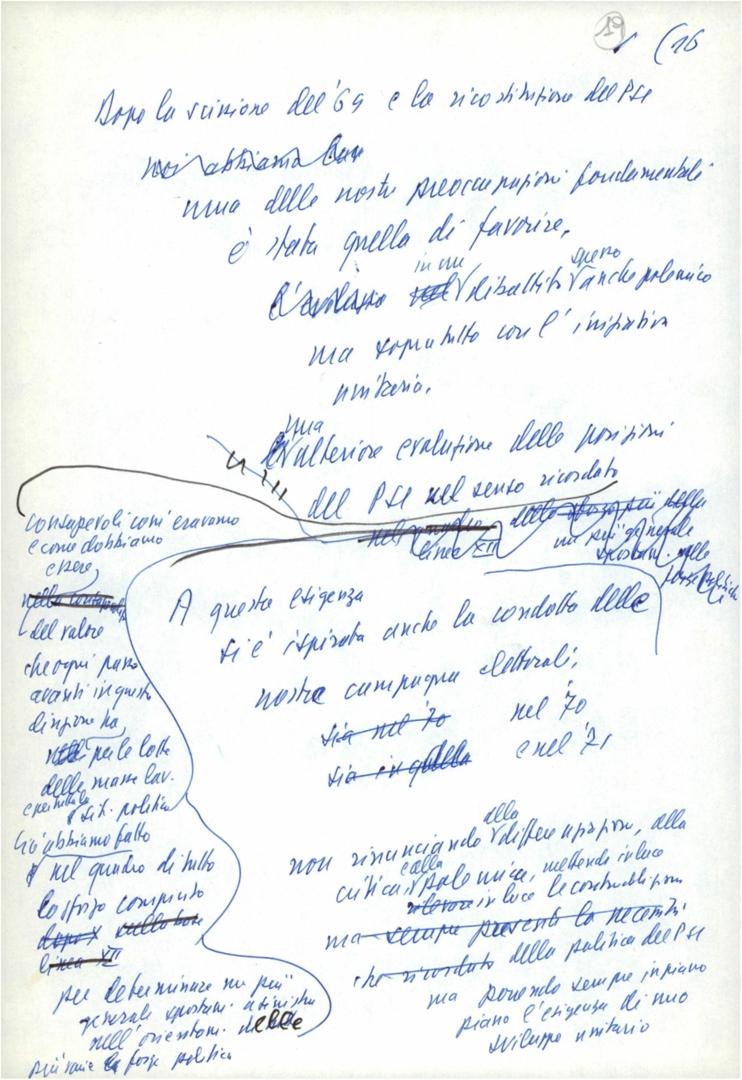 19 (16
Dopo la scissione del '69 e la ricostituzione del PSI
noi abbiamo
una delle nostre preoccupazioni fondamentali
è stata quella di favorire,
in un spesso
dibattito anche polemico
ma sopratutto con l'iniziativa
unitaria,
una
ulteriore evoluzione delle posizioni
del PSI nel senso ricordato
linea XII
un più generale
spostam. nelle
forze politiche
consapevoli come eravamo
e come dobbiamo
essere,
del valore
che ogni passo
avanti in questa
direzione ha,
per le lotte
delle masse lav.
e per tutta la
sit. politica
Ciò abbiamo fatto
nel quadro di tutto
lo sforzo compiuto
dopo X sulla base
linea XII
per determinare un più
generale spostam. a sinistra
nell'orientam. delle
varie forze politiche
A questa esigenza
si è ispirata anche la condotta delle
nostre campagne elettorali,
sia nel '70 nel '70
sia in quella e nel '71
non rinunciando alla differenziazione, alla
critica e alla polemica, mettendo in luce
in luce le contraddizioni
ma sempre presenti la necessità
che ricordato della politica del PSI
ma ponendo sempre in primo
piano l'esigenza di uno
sviluppo unitario